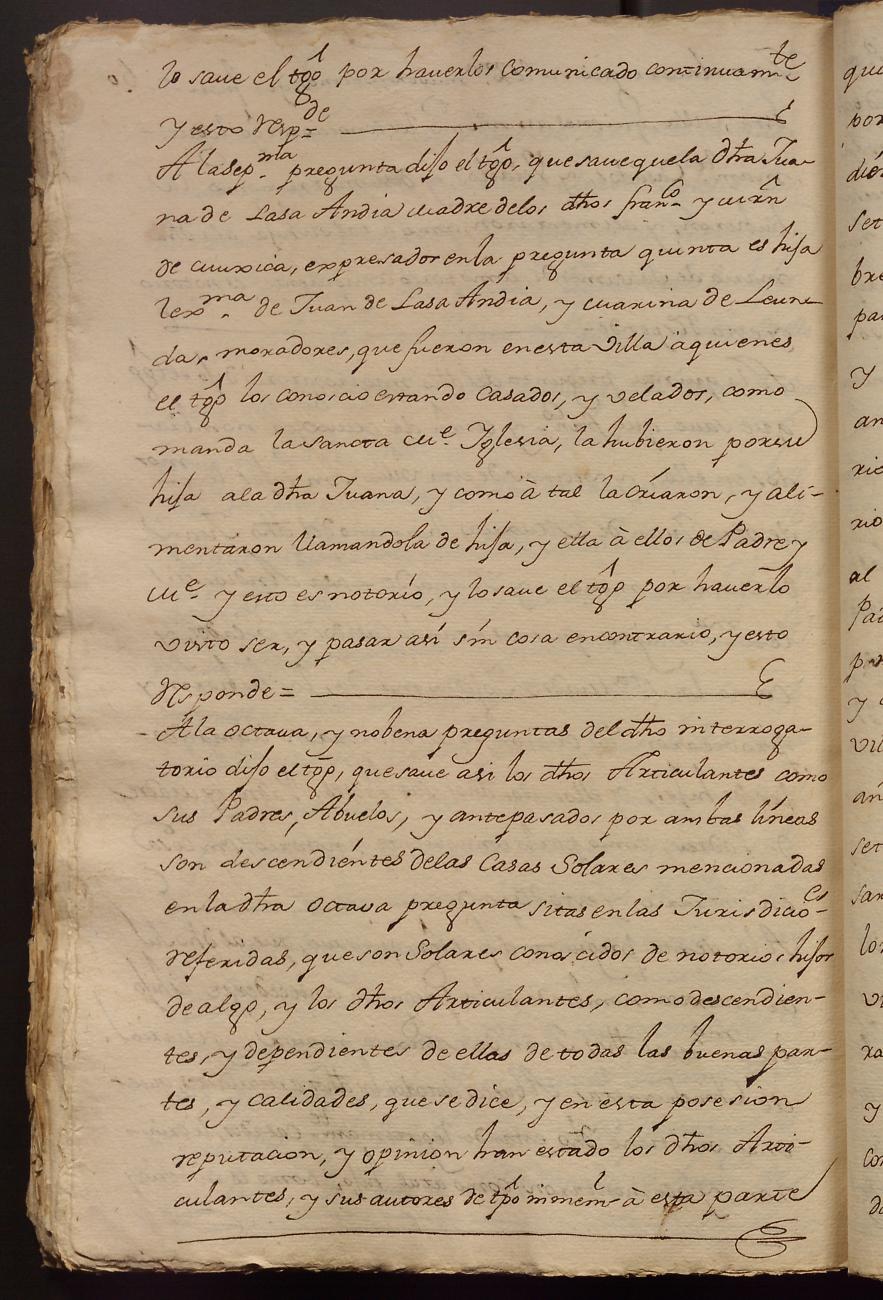 lo save el tgô por haverlos comunicado continuam.te
y esto resp.de
A la sep.ma pregunta dijo el tgô, que save que la dĥa Jua-
na de Lasa Andia madre de los dĥos fran.co y mrñ
de mujica, expresados en la pregunta quinta es hija
lexma. de Juan de Lasa Andia, y marina de Leun-
da, moradores, que fueron en esta Villa a quienes
el tgô los conoscio estando casados, y velados, como
manda la sancta Me. Iglesia, la hubieron por su
hija a la dĥa Juana, y como à tal la críaron, y ali-
mentaron llamandola de hija, y ella à ellos de Padre y
Me. y esto es notorío, y lo save el tgô por haverlo
visto ser, y pasar así sín cosa encontrario, y esto
responde =
- A la octava, y nobena preguntas del dĥo interroga-
torio dijo el tgô, que save asi los dĥos Articulantes como
sus Padres, Abuelos, y antepasados por ambas líneas
son descendiéntes de las Casas Solares mencionadas
en la dĥa octava pregunta sitas en las Jurisdicio-es
referidas, que son Solares conoscidos de notorios hijos
de algo, y los dĥos Articulantes, como descendien-
tes, y dependientes de ellas de todas las buenas par-
tes, y calidades, que se dice, y en esta posesion
reputacion, y opinion han estado los dĥos Arti-
culantes, y sus autores de tpô inmem.l à esta parte
que
por
set
bre
y
al
y
set
y